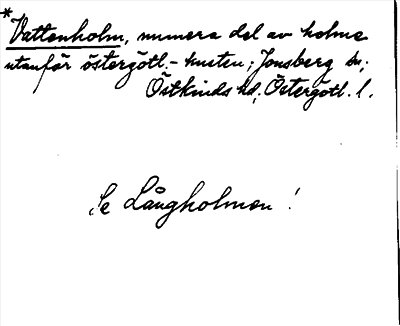 *Vattenholm, numera del av holme
utanför östergötl.-kusten; Jonsberg sn;
Östkinds hd; Östergötl. l.
Se Långholmen!